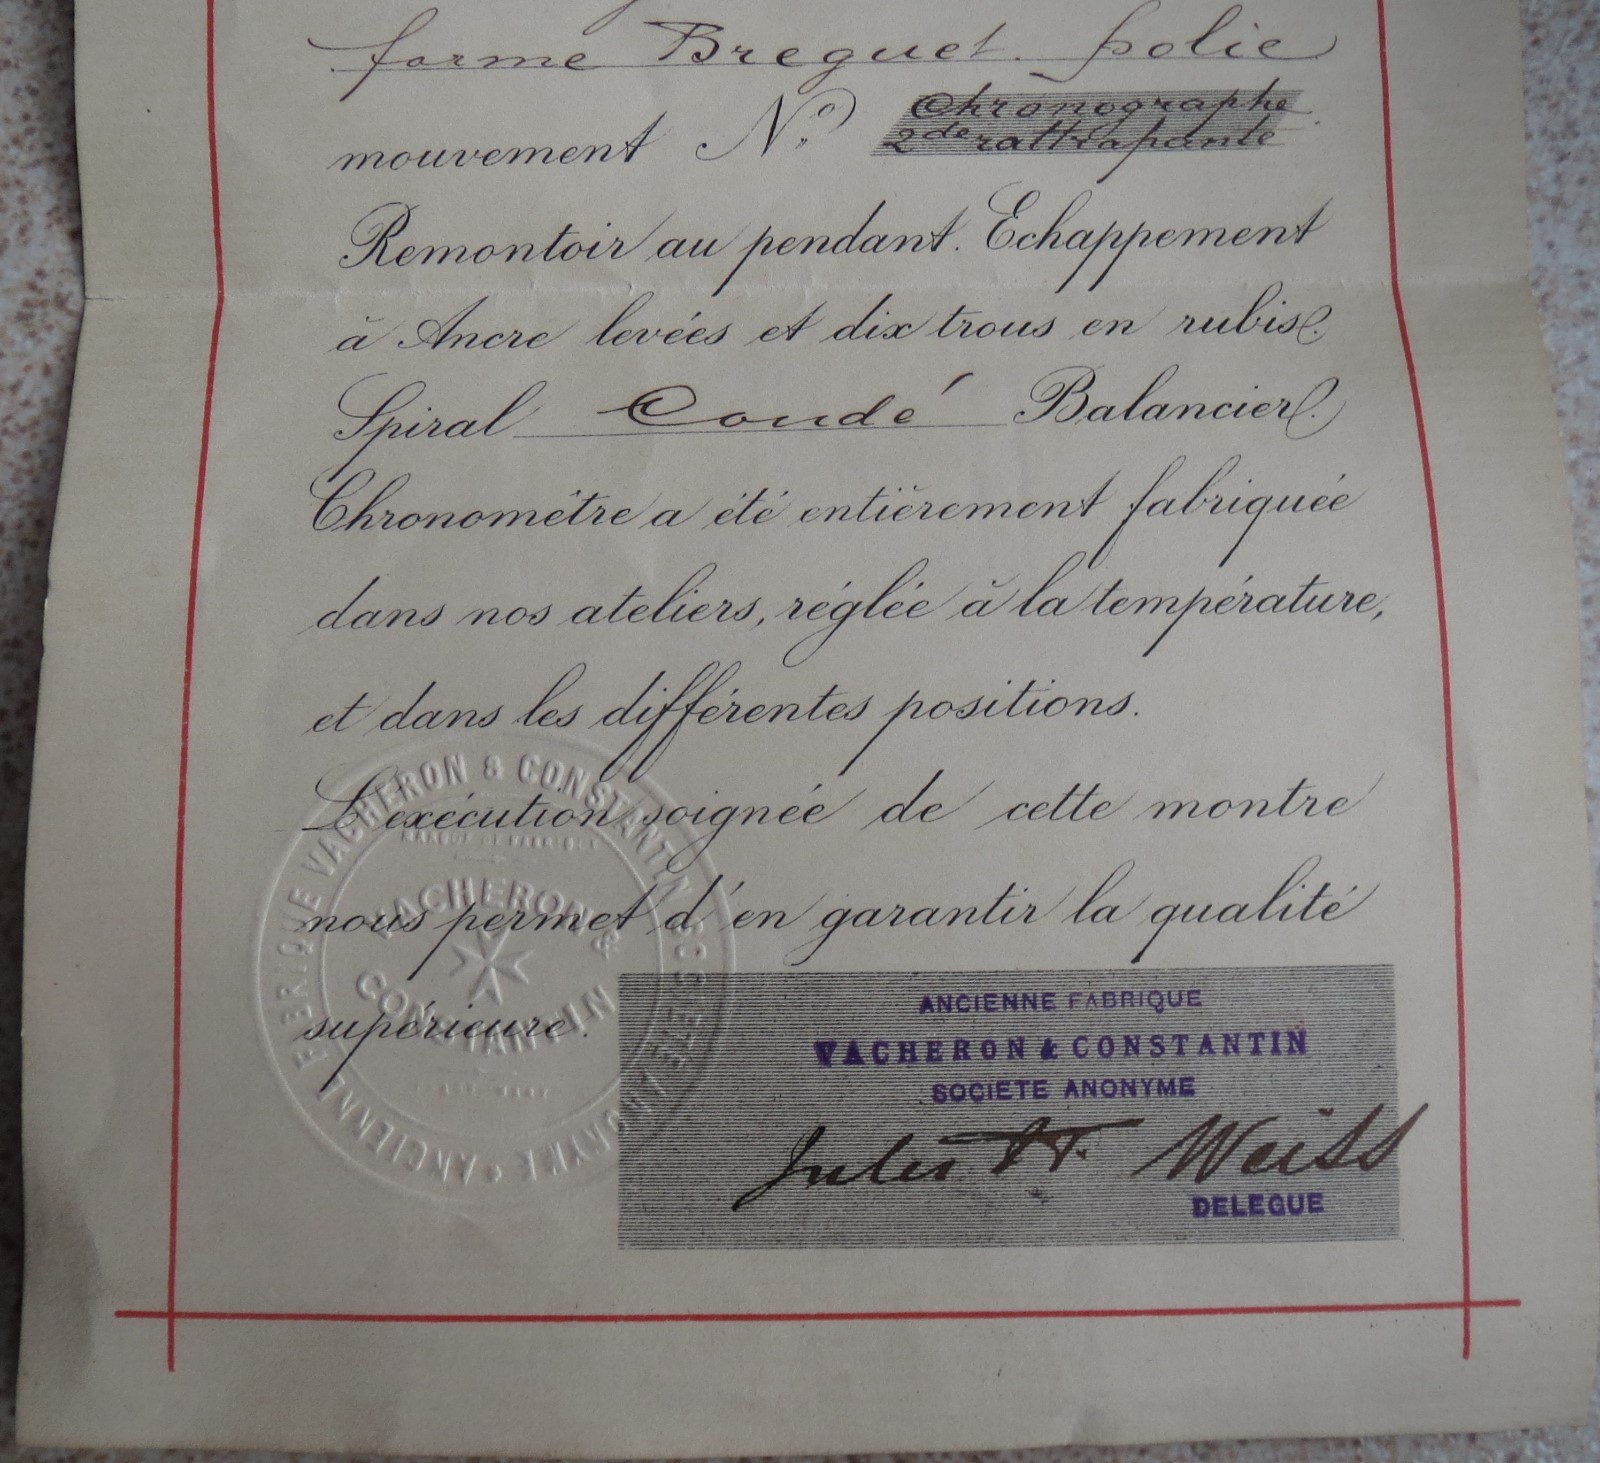 forme Breguet polie
mouvement N.º Chronographe
2de rattrapante
Remontoir au pendant. Echappement
à Ancre levées et dix trous en rubis.
Spiral Coudé Balancier.
Chronomêtre a été entièrement fabriquée
dans nos ateliers, réglée à la température,
et dans les différentes positions.
L'exécution soignée de cette montre
nous permet d'en garantir la qualité
supérieure.
ANCIENNE FABRIQUE VACHERON & CONSTANTIN SOCIETE ANONYME
VACHERON &
CONSTANTIN
ANCIENNE FABRIQUE
VACHERON & CONSTANTIN
SOCIETE ANONYME
Jules H. Weiss
DELEGUE